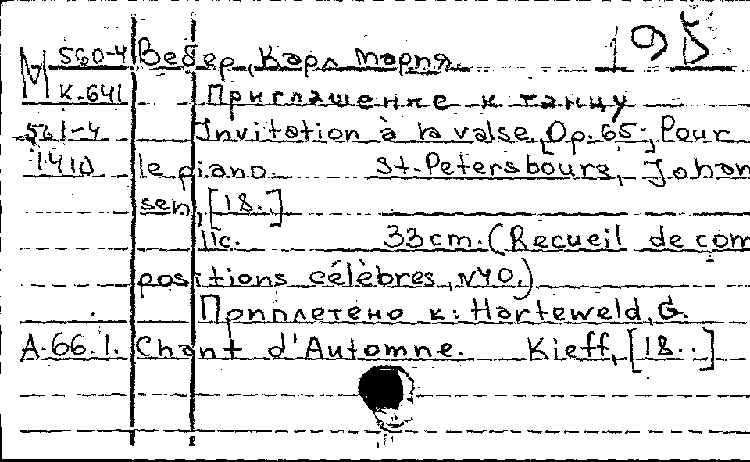 195
М 560-4 Вебер, Карл Мария.
К-641 Приглашение к танцу
561-4 Invitation à la valse, Op. 65; Pour
1410 le piano. St.-Petersbourg, Johan
sen, [18..]
11c. 33cm. (Recueil de com
positions célèbres, №40.)
Приплетено к: Harteweld, G.
A.66.1. Chant d'Automne. Kieff, [18..]